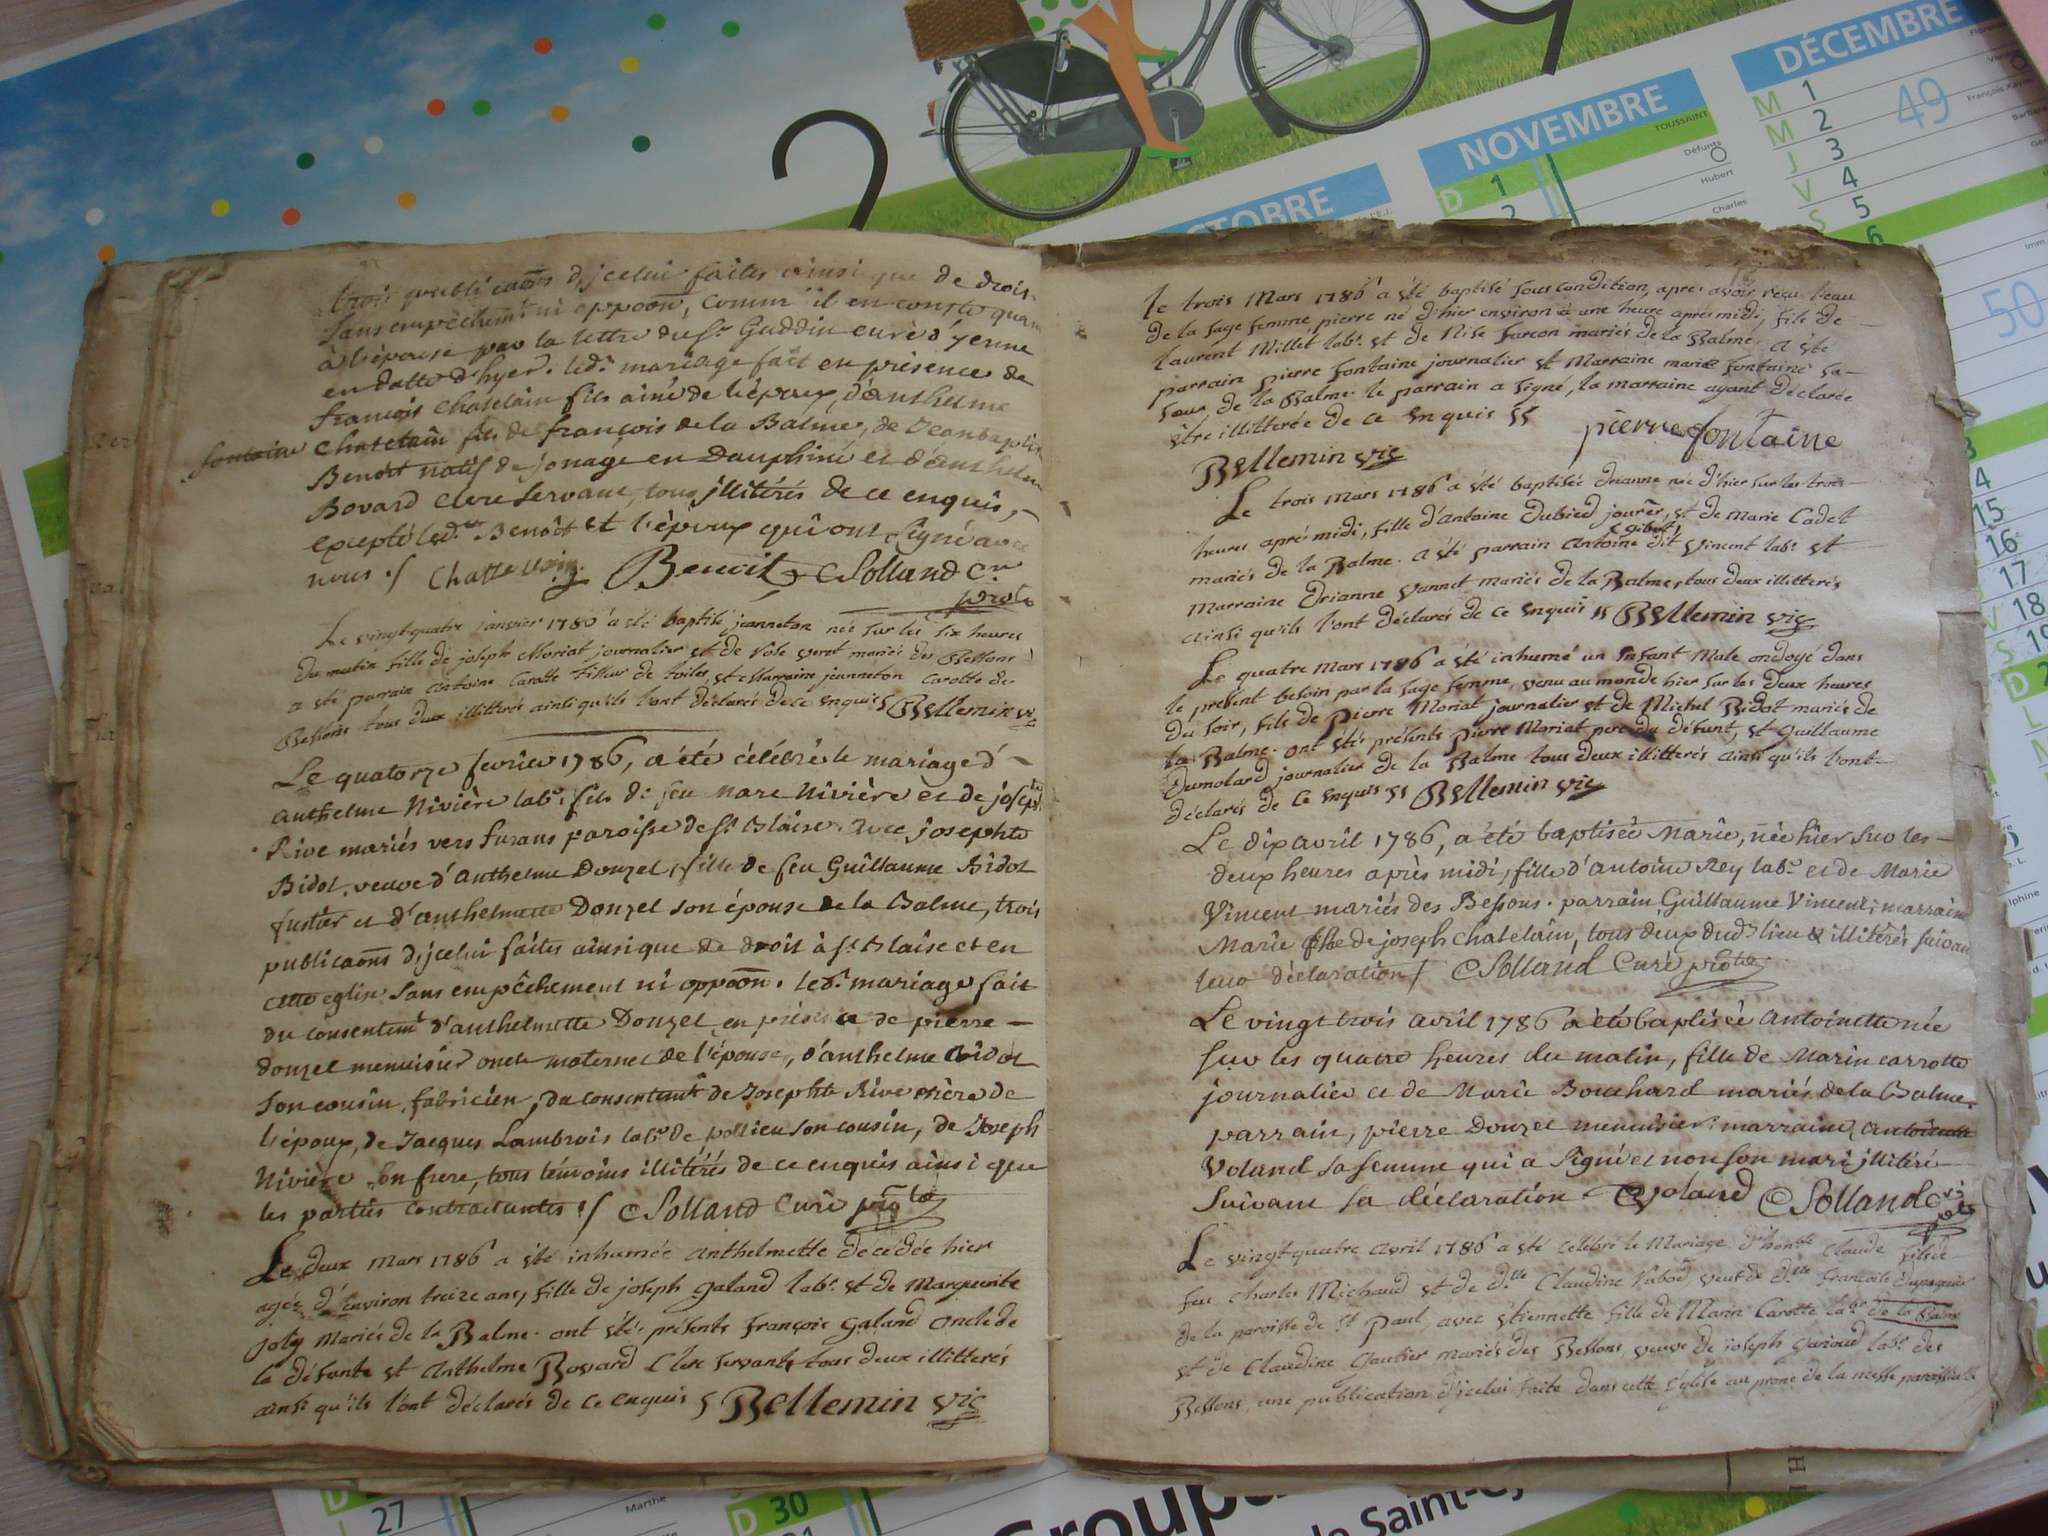 trois publicaõns d'jcelui faites ainsi que de droit
sans empêchemt ni oppoõn, comme il en conste quant
à l'épouse par la lettre du sr Guddin curé d'yenne
en datte d'hyer. led. mariage fait en présence de
françois Chatelain fils ainé de l'époux, d'anthelme
fontaine Chatelain fils de françois de la Balme, de Jean baptiste
Benoit natif de jonage en Dauphiné et d'anthelme
Bovard clerc servant, tous illitérés de ce enquis,
excepté led. Benoît et l'époux qui ont signé avec
nous ./ Chattellain Benoit CSolland Cr
prole
Le vingt-quatre janvier 1786 a été baptisé jeanneton née sur les six heures
du matin fille de joseph Moriat journalier et de Rose veret mariés des Bessons
a été parrain antoine Carotte tisseur de toiles, et Marraine jeanneton Carotte des
Bessons tous deux illitterés ainsi qu'ils l'ont déclarés de ce enquis § Bellemin vic
Le quatorze fevrier 1786, a été célébré le mariage d'
anthelme Nivière labr. fils de feu Marc Nivière et de josephte
Rive mariés vers furans paroisse de St Blaise avec josephte
Bidol, veuve d'Anthelme Donzel, fille de feu Guillaume Bidol
fustier et d'anthelmette Donzel son épouse de la Balme, trois
publicaõns d'jcelui faites ainsi que de droit à St Blaise et en
cette eglise sans empêchement ni oppoõn. led. mariage fait
du consentemt d'anthelmette Donzel, en présence de pierre
donzel menuisier oncle maternel de l'épouse, d'anthelme Bidol
son cousin, fabricien, du consentemt de Josephte Rive mère de
l'époux, de Jacques Lambrois labr. de pollieu son cousin, de Joseph
Nivière son frere, tous témoins illitérés de ce enquis ainsi que
les parties contractantes ./ CSolland Curé prole
Le deux Mars 1786 a été inhumée Anthelmette décédée hier
agée d'environ treize ans, fille de joseph galand labr. et de Marguerite
joly Mariés de la Balme. ont étés présents françois galand Oncle de
la défunte et Anthelme Bovard Clerc servant, tous deux illitterés
ainsi qu'ils l'ont déclarés de ce enquis § Bellemin vic
le trois Mars 1786 a été baptisé sous condition, apres avoir reçu l'eau
de la sage femme, pierre né d'hier environ à une heure après midi, fils de
Laurent Millet labr. et de Nise furcon mariés de la Balme. a été
parrain pierre fontaine journalier et Marraine marie fontaine sa
soeur de la Balme. le parrain a signé, la marraine ayant déclarée
être illitterée de ce enquis §§ pierre fontaine
Bellemin vic
Le trois Mars 1786 a été baptisée Drianne née d'hier sur les trois
heures après midi, fille d'antoine Dubied jourer, et de Marie Cadet
mariés de la Balme. a été parrain antoine gibert dit Vincent labr. et
Marraine Drianne vannet mariés de la Balme, tous deux illitterés
ainsi qu'ils l'ont déclarés de ce enquis §§ Bellemin vic
Le quatre Mars 1786 a été inhumé un Enfant Male ondoyé dans
le présent besoin par la sage femme, venu au monde hier sur les deux heures
du soir, fils de Pierre Moriat journalier et de Michel Bidot mariés de
la Balme. ont étés présents Pierre Moriat pere du défunt, et guillaume
Dumolard journalier de la Balme tous deux illitterés ainsi qu'ils l'ont
déclarés de ce enquis §§ Bellemin vic
Le dix avril 1786, a été baptisée Marie, née hier sur les
deux heures après midi, fille d'antoine Rey labr. et de Marie
Vincent mariés des Bessons. parrain Guillaume Vincent; marraine
Marie fille de joseph Chatelain, tous deux dud. lieu & illitérés suivant
leur déclaration / CSolland Curé prole
Le vingt trois avril 1786 a été baptisée Antoinette née
sur les quatre heures du matin, fille de Marin carrotte
journalier et de Marie Bouchard mariés de la Balme,
parrain, pierre Donzel menuisier: marraine, Antoinette
Voland sa femme qui a signé et non son mari illitéré
suivant sa déclaration Voland CSolland Cr
prole
Le vingt-quatre avril 1786 a été célébré le Mariage d'honble Claude fils de
feu Charles Michaud et de dlle Claudine Vabod, veuf de dlle francoise Dupasquier
de la paroisse de St Paul, avec étiennette fille de Marin Carotte labr de la Balme
et de Claudine gautier mariés des Bessons, veuve de joseph garioud labr. des
Bessons, une publication d'icelui faite dans cette Eglise au prone de la messe paroissiale
2
9
OCTOBRE
NOVEMBRE
TOUSSAINT
D 1
Défunts
2
Hubert
Charles
DÉCEMBRE
M 1
M 2
J 3
V 4
S 5
6
49
50
14
15
16
17
V 18
S 19
D
L
27
Marthe
D 30
Groupe
de Saint-